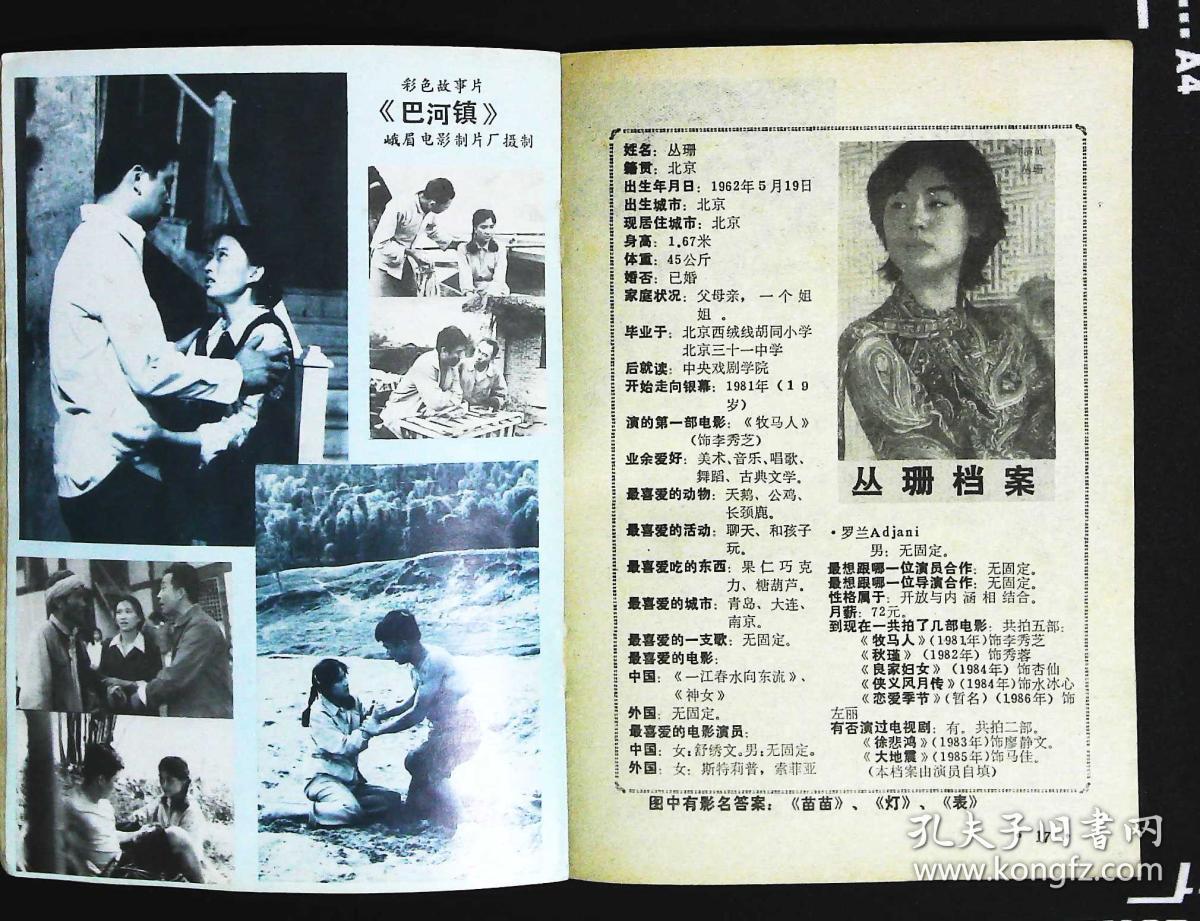 彩色故事片
《巴河镇》
峨眉电影制片厂摄制
姓名：丛珊
籍贯：北京
出生年月日：1962年5月19日
出生城市：北京
现居住城市：北京
身高：1.67米
体重：45公斤
婚否：已婚
家庭状况：父母亲，一个姐
姐。
毕业于：北京西绒线胡同小学
北京三十一中学
后就读：中央戏剧学院
开始走向银幕：1981年（19
岁）
演的第一部电影：《牧马人》
（饰李秀芝）
业余爱好：美术、音乐、唱歌、
舞蹈、古典文学。
最喜爱的动物：天鹅、公鸡、
长颈鹿。
最喜爱的活动：聊天、和孩子
玩。
最喜爱吃的东西：果仁巧克
力、糖葫芦。
最喜爱的城市：青岛、大连、
南京。
最喜爱的一支歌：无固定。
最喜爱的电影：
中国：《一江春水向东流》、
《神女》
外国：无固定。
最喜爱的电影演员：
中国：女：舒绣文。男：无固定。
外国：女：斯特莉普，索菲亚
丛珊
丛珊档案
·罗兰Adjani
男：无固定。
最想跟哪一位演员合作：无固定。
最想跟哪一位导演合作：无固定。
性格属于：开放与内涵相结合。
月薪：72元。
到现在一共拍了几部电影：共拍五部：
《牧马人》（1981年）饰李秀芝
《秋瑾》（1982年）饰秀蓉
《良家妇女》（1984年）饰杏仙
《侠义风月传》（1984年）饰水冰心
《恋爱季节》（暂名）（1986年）饰
左丽
有否演过电视剧：有。共拍二部。
《徐悲鸿》（1983年）饰廖静文。
《大地震》（1985年）饰马佳。
（本档案由演员自填）
图中有影名答案：《苗苗》、《灯》、《表》
17
孔夫子旧书网
www.kongfz.com
A4